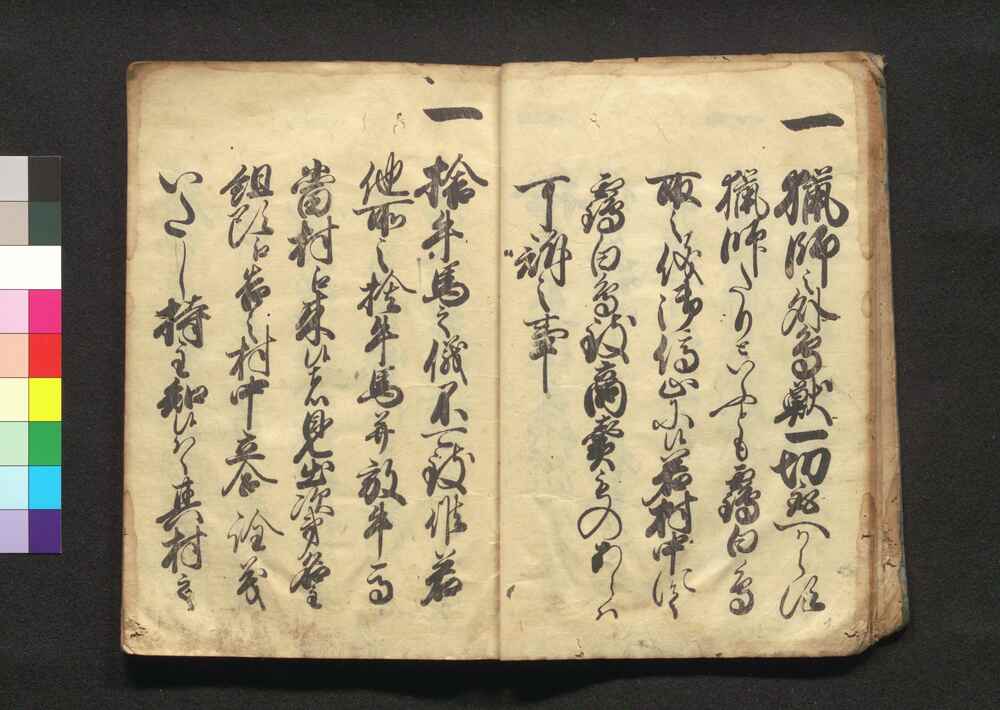 一 猟師之外鳥獣一切殺へからす
猟師たりといふとも靏白鳥
取之儀御停止ニ候若村中ニて
靏白鳥致商賣ものあらハ
可訴之事
一 捨牛馬之儀不可致候若
他所之捨牛馬并放牛馬
当村江来候ハヽ見出次第名主
組頭江告之村中立合詮義
いたし持主知候ハヽ其村江